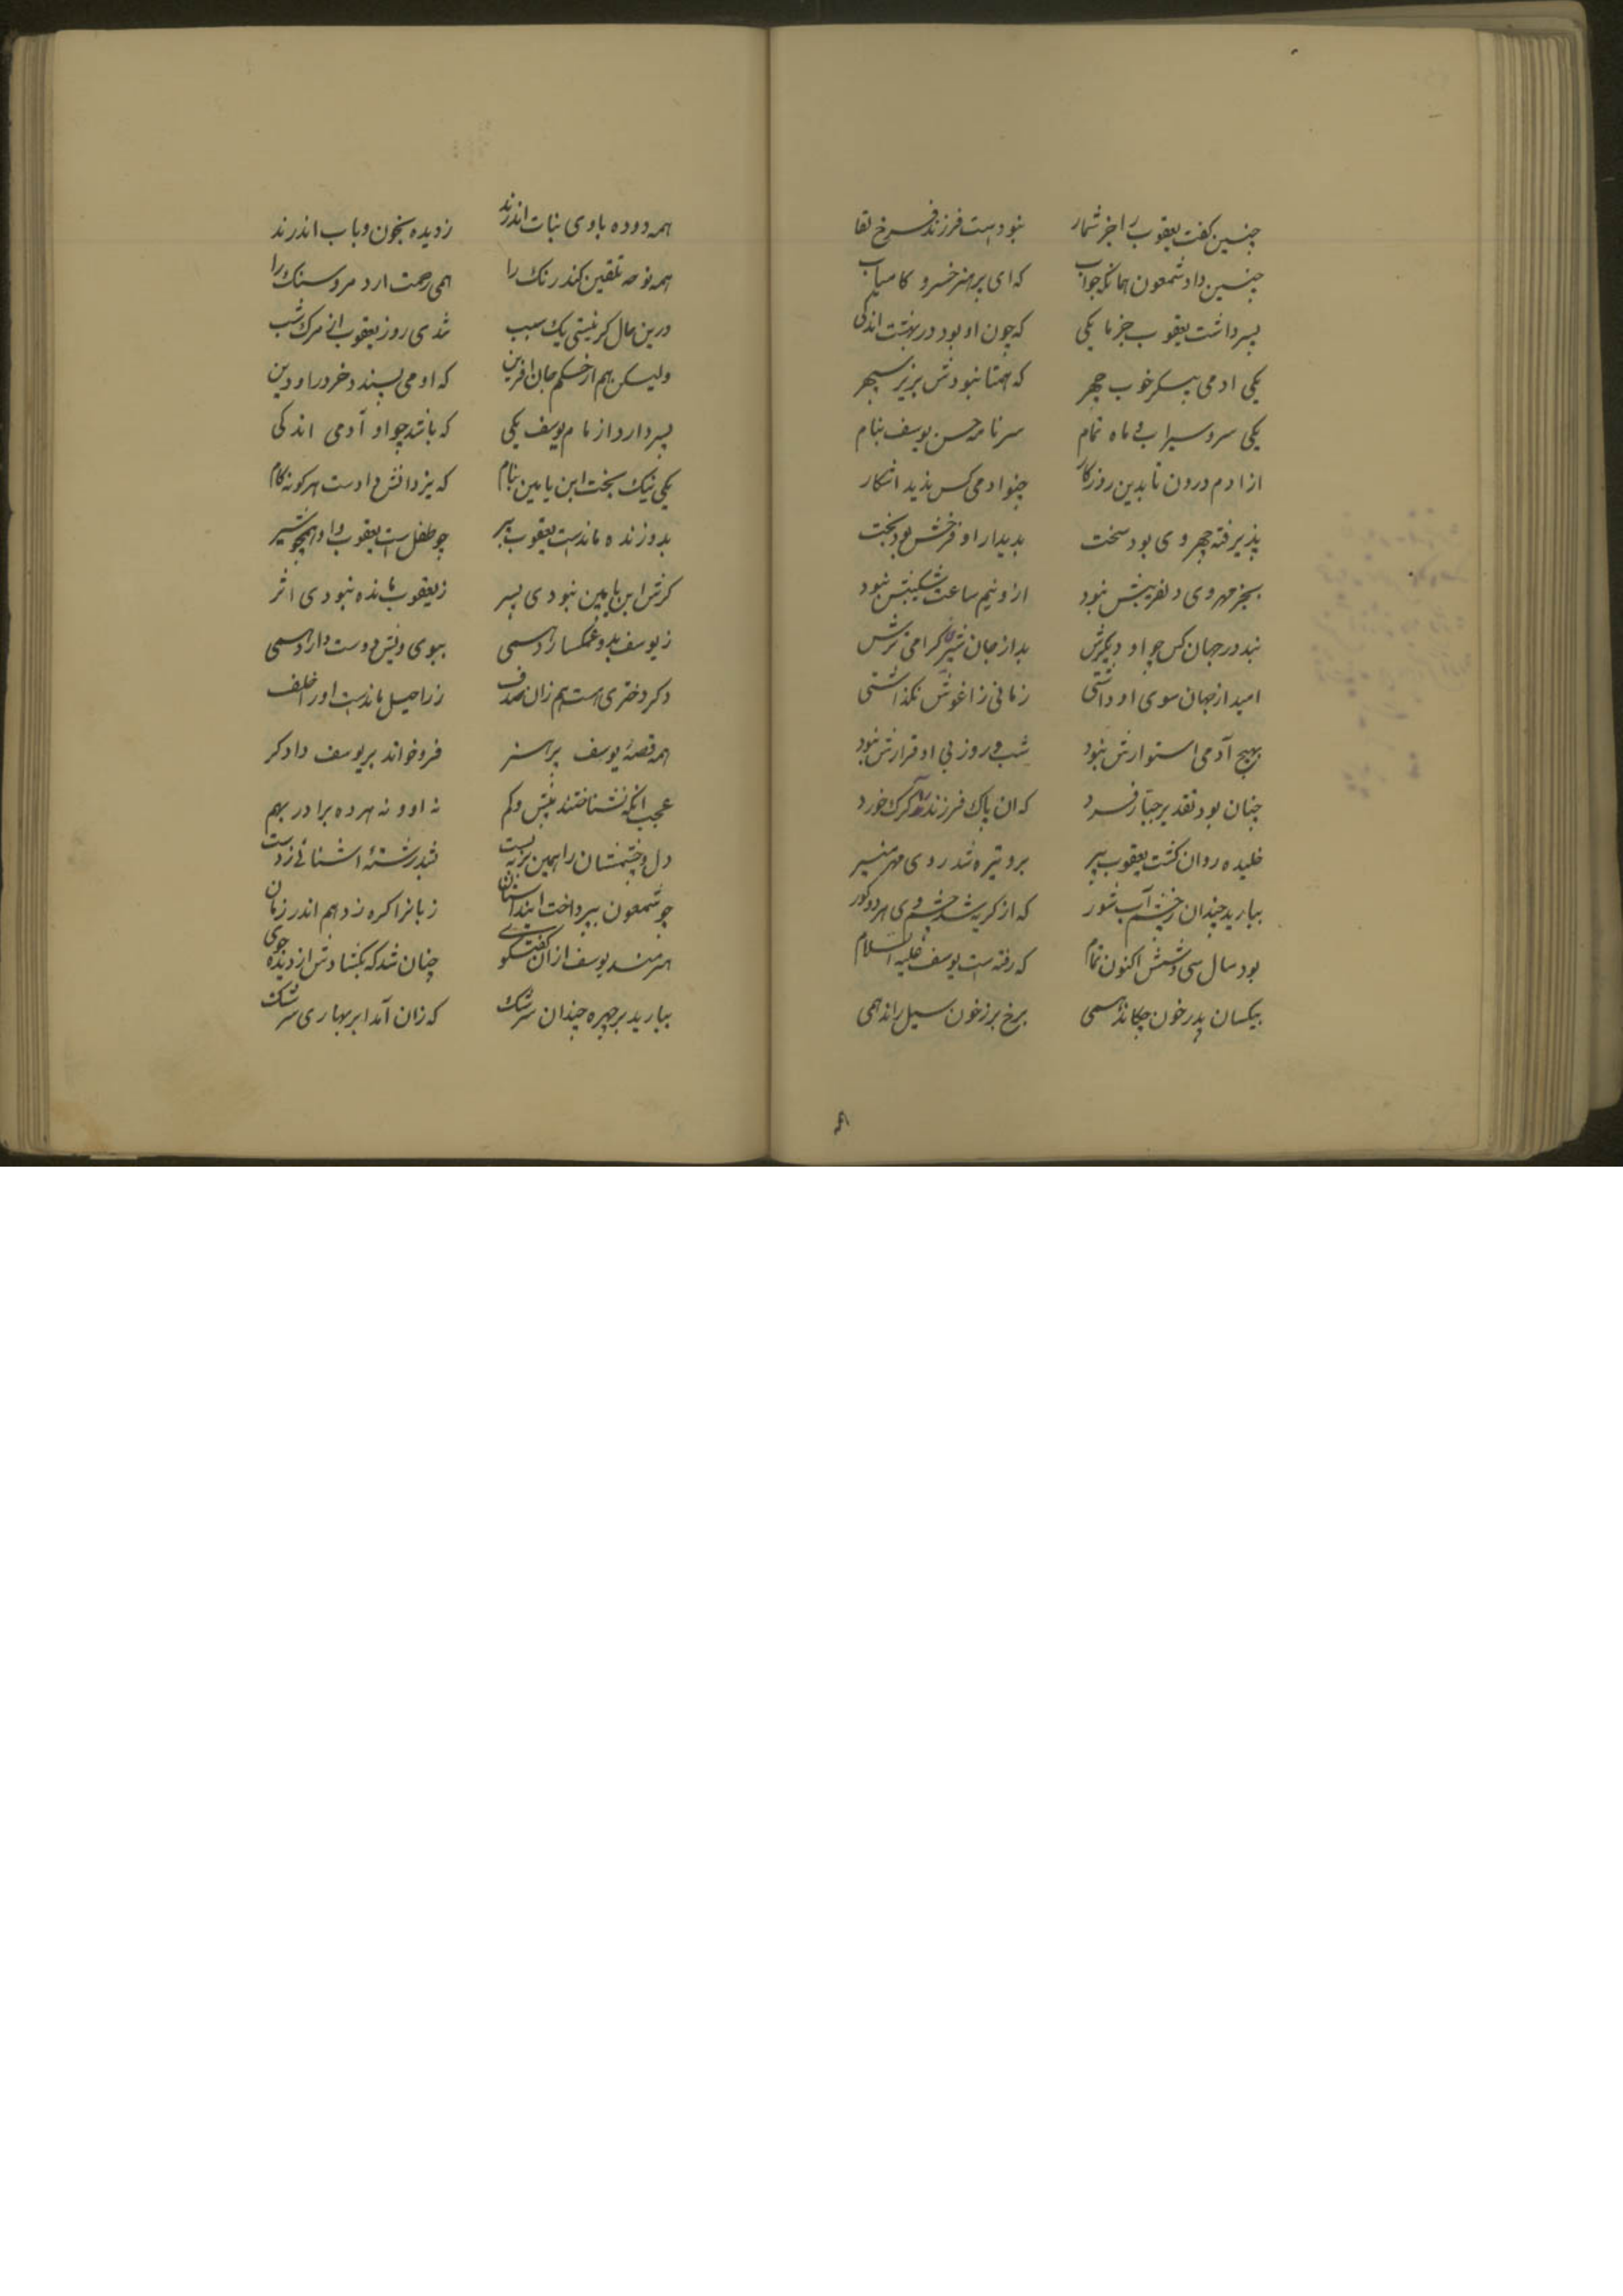 چنین گفت یعقوب را جز شمار نبودست فرزند فرخ لقا
چنین داد شمعون همانکه جواب که ای پرهنر خسرو کامیاب
پسر داشت یعقوب جز ما یکی که چون او بود در بهشت اندکی
یکی ادمی پیکر خوب چهر که همتا نبودش بزیر سپهر
یکی سرو سیراب و ماه تمام سر نامه حسن یوسف بنام
از ادم درون تا بدین روزکار چنو ادمی کس ندید اشکار
پذیرفته چهر وی بود سخت بدیدار او فرخش بود بخت
بجز مهر وی دلفریبش نبود ازو نیم ساعت شکیبش نبود
نبد در جهان کس چو او دیکرش بد از جان شیرین کرامی ترش
امید از جهان سوی او داشتی زمانی ز اغوش نکذاشتی
بهیچ آدمی استوارش نبود شب و روز بی او قرارش نبود
چنان بود تقدیر جبار فرد که ان پاک فرزند را کرک خورد
خلیده روان کشت یعقوب پیر برو تیره شد روی مهر منیر
ببارید چندان ز چشم آب شور که از کریه شد چشم وی هر دو کور
بود سال سی و شش اکنون تمام که رفته است یوسف علیه السلام
بیکسان پدر خون چکاند همی برخ بر ز خون سیل راند همی
همه دوده با وی بتاب اندرند ز دیده بخون و باب اندرند
همه نوحه تلقین کند رنک را همی رحمت ارد مرو سنک را
درین حال کر نیستی یک سبب شدی روز یعقوب از مرک شب
ولیکن هم از حکم جان افرین که او می پسندد خرد را و دین
پسر دارد از مام یوسف یکی که باشد چو او آدمی اندکی
یکی نیک بخت ابن یامین بنام که یزدانش دادست هرکونه کام
بدو زنده ماندست یعقوب پیر چو طفل است یعقوب و او همچو شیر
کرش ابن یامین نبودی پسر ز یعقوب مانده نبودی اثر
ز یوسف بدو غمکسارد همی ببوی ویش دوست دارد همی
دکر دختری است هم زان صدف ز راحیل ماندست او را خلف
همه قصهٔ یوسف پرهنر فرو خواند بر یوسف دادکر
عجب آنکه نشناختند بیش و کم نه او و نه هر ده برادر بهم
دل و چشمشان را همین بر ببست نبد رشتهٔ اشنائی ز دست
چو شمعون بپرداخت این داستان زبانرا کره زد هم اندر زمان
هنرمند یوسف ازان کفتکوی چنان شد که بکشادش از دیده جوی
ببارید بر چهره چندان سرشک که زان آمد ابر بهاری سرشک